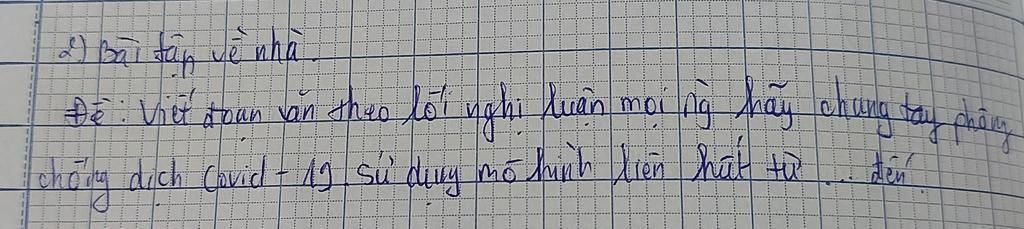 2) Bài tập về nhà.
Đề: Viết đoạn văn theo lối nghị luận mọi ng hãy chung tay phòng
chống dịch Covid - 19 sử dụng mô hình liên kết từ ... đến